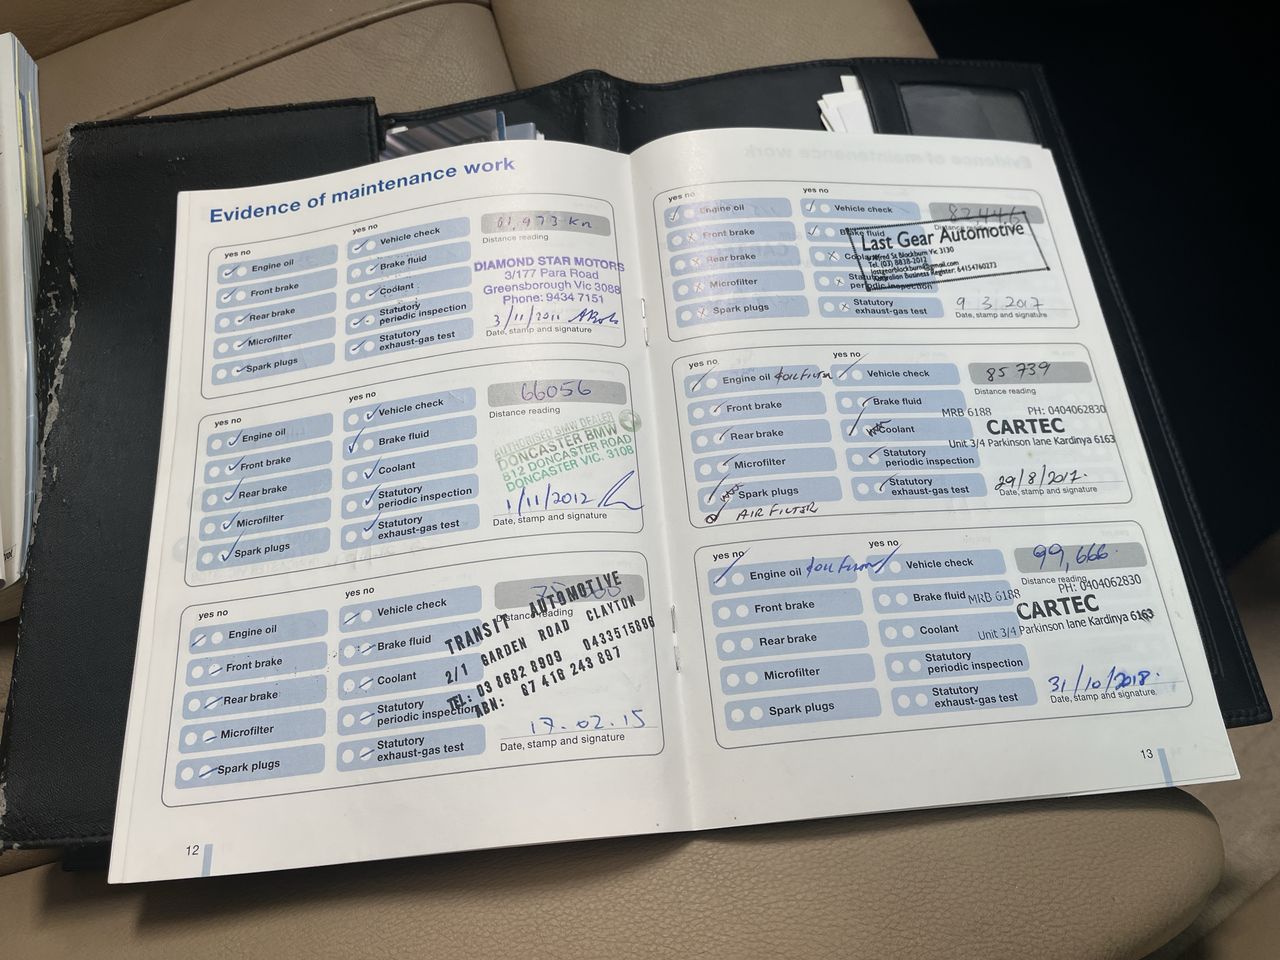 Evidence of maintenance work
yes no
yes no
Engine oil
Front brake
Rear brake
Microfilter
Spark plugs
Vehicle check
Brake fluid
Coolant
Statutory
periodic inspection
Statutory
exhaust-gas test
61,973 Km
Distance reading
DIAMOND STAR MOTORS
3/177 Para Road
Greensborough Vic 3088
Phone: 9434 7151
3/11/2011
Date, stamp and signature
yes no
yes no
Engine oil
Front brake
Rear brake
Microfilter
Spark plugs
Vehicle check
Brake fluid
Coolant
Statutory
periodic inspection
Statutory
exhaust-gas test
66056
Distance reading
AUTHORISED BMW DEALER
DONCASTER BMW
812 DONCASTER ROAD
DONCASTER VIC. 3108
1/11/2012
Date, stamp and signature
yes no
yes no
Engine oil
Front brake
Rear brake
Microfilter
Spark plugs
Vehicle check
Brake fluid
Coolant
Statutory
periodic inspection
Statutory
exhaust-gas test
Distance reading
TRANSIT AUTOMOTIVE
2/1 GARDEN ROAD CLAYTON
TEL: 03 8882 8909 0433515896
ABN: 87 418 243 887
17.02.15
Date, stamp and signature
12
yes no
yes no
Engine oil
Front brake
Rear brake
Microfilter
Spark plugs
Vehicle check
Brake fluid
Statutory
exhaust-gas test
82446
Last Gear Automotive
Alfred St Blackburn Vic 3130
Tel. (03) 8838-2012
lastgearblackburn@gmail.com
Australian Business Register: 64154760273
9.3.2017
Date, stamp and signature
yes no
yes no
Engine oil & oil Filter
Front brake
Rear brake
Microfilter
Spark plugs
AIR FILTER
Vehicle check
Brake fluid
Coolant
Statutory
periodic inspection
Statutory
exhaust-gas test
85 739
Distance reading
MRB 6188 PH: 0404062830
CARTEC
Unit 3/4 Parkinson lane Kardinya 6163
29/8/2017.
Date, stamp and signature
yes no
yes no
Engine oil & oil Filter
Front brake
Rear brake
Microfilter
Spark plugs
Vehicle check
Brake fluid
Coolant
Statutory
periodic inspection
Statutory
exhaust-gas test
99,666.
Distance reading
MRB 6188 PH: 0404062830
CARTEC
Unit 3/4 Parkinson lane Kardinya 6163
31/10/2018.
Date, stamp and signature
13